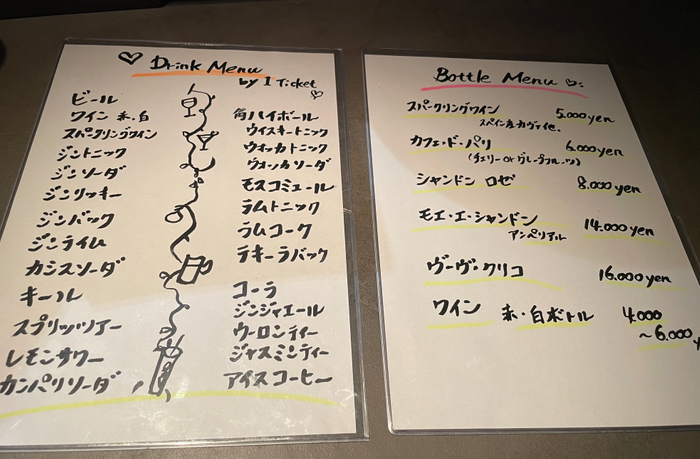 Drink Menu
by 1 Ticket
ビール
ワイン 赤・白
スパークリングワイン
ジントニック
ジンソーダ
ジンリッキー
ジンバック
ジンライム
カシスソーダ
キール
スプリッツアー
レモンサワー
カンパリソーダ
角ハイボール
ウイスキートニック
ウォッカトニック
ウォッカソーダ
モスコミュール
ラムトニック
ラムコーク
テキーラバック
コーラ
ジンジャエール
ウーロンティー
ジャスミンティー
アイスコーヒー
Bottle Menu
スパークリングワイン 5.000yen
スペイン産カヴァ他.
カフェ・ド・パリ 6.000yen
(チェリー or グレープフルーツ)
シャンドン ロゼ 8.000yen
モエ・エ・シャンドン 14.000yen
アンペリアル
ヴーヴ・クリコ 16.000yen
ワイン 赤・白ボトル 4.000
～6.000y